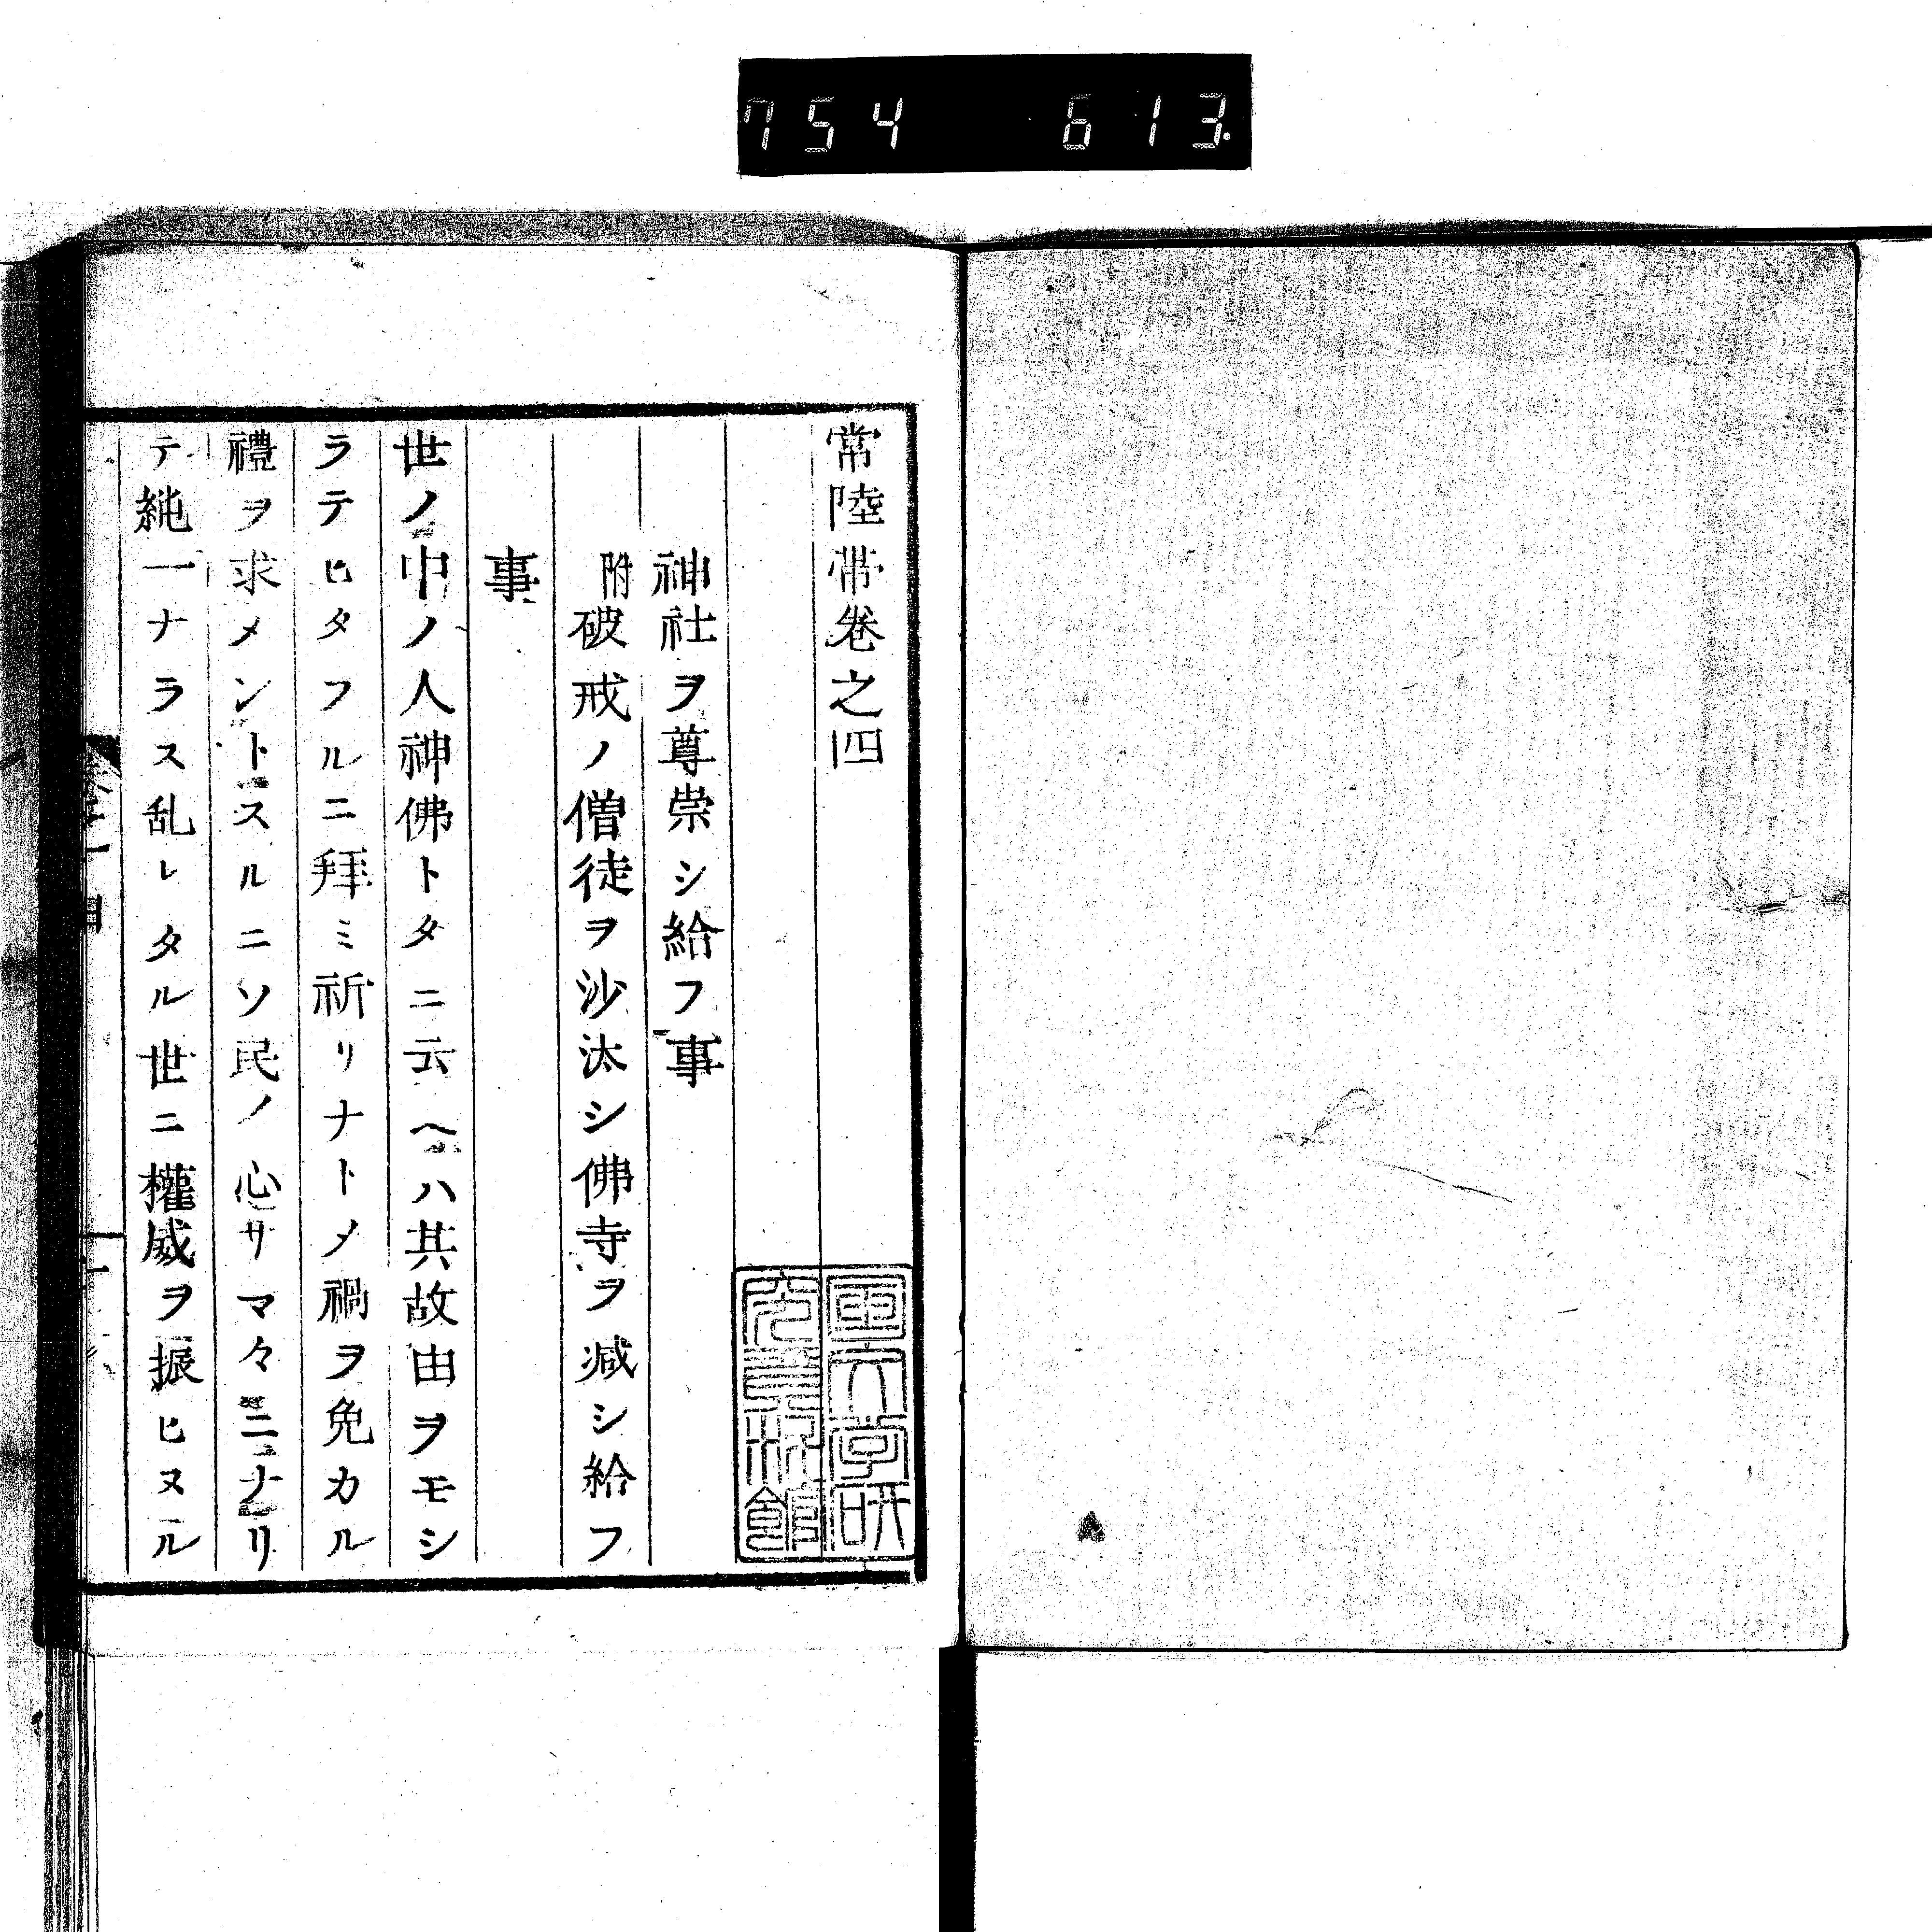 754 613.
常陸帯巻之四
神社ヲ尊崇シ給フ事
附破戒ノ僧徒ヲ沙汰シ佛寺ヲ減シ給フ
事
世ノ中ノ人神佛トタニ云ヘハ其故由ヲモシ
ラテヒタフルニ拜ミ祈リナトメ禍ヲ免カル
禮ヲ求メントスルニソ民ノ心サマ々ニナリ
テ純一ナラス乱レタル世ニ權威ヲ振ヒヌル